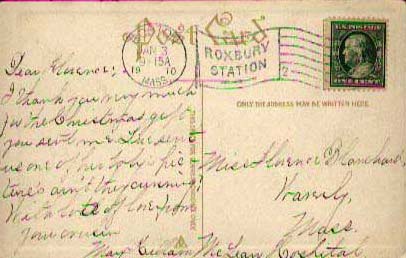 Post Card
JAN 3
9-15A
19 10
MASS.
ROXBURY
STATION
2
U.S. POSTAGE
ONE CENT
ONLY THE ADDRESS MAY BE WRITTEN HERE.
Dear Florence;
I thank you very much
for the Christmas gift
you sent me. Lue sent
us one of her baby's pic
tures ain't they cunning?
With lots of love from
your cousin
May
Miss Florence Blanchard,
Waverly,
Mass.
McLean Hospital